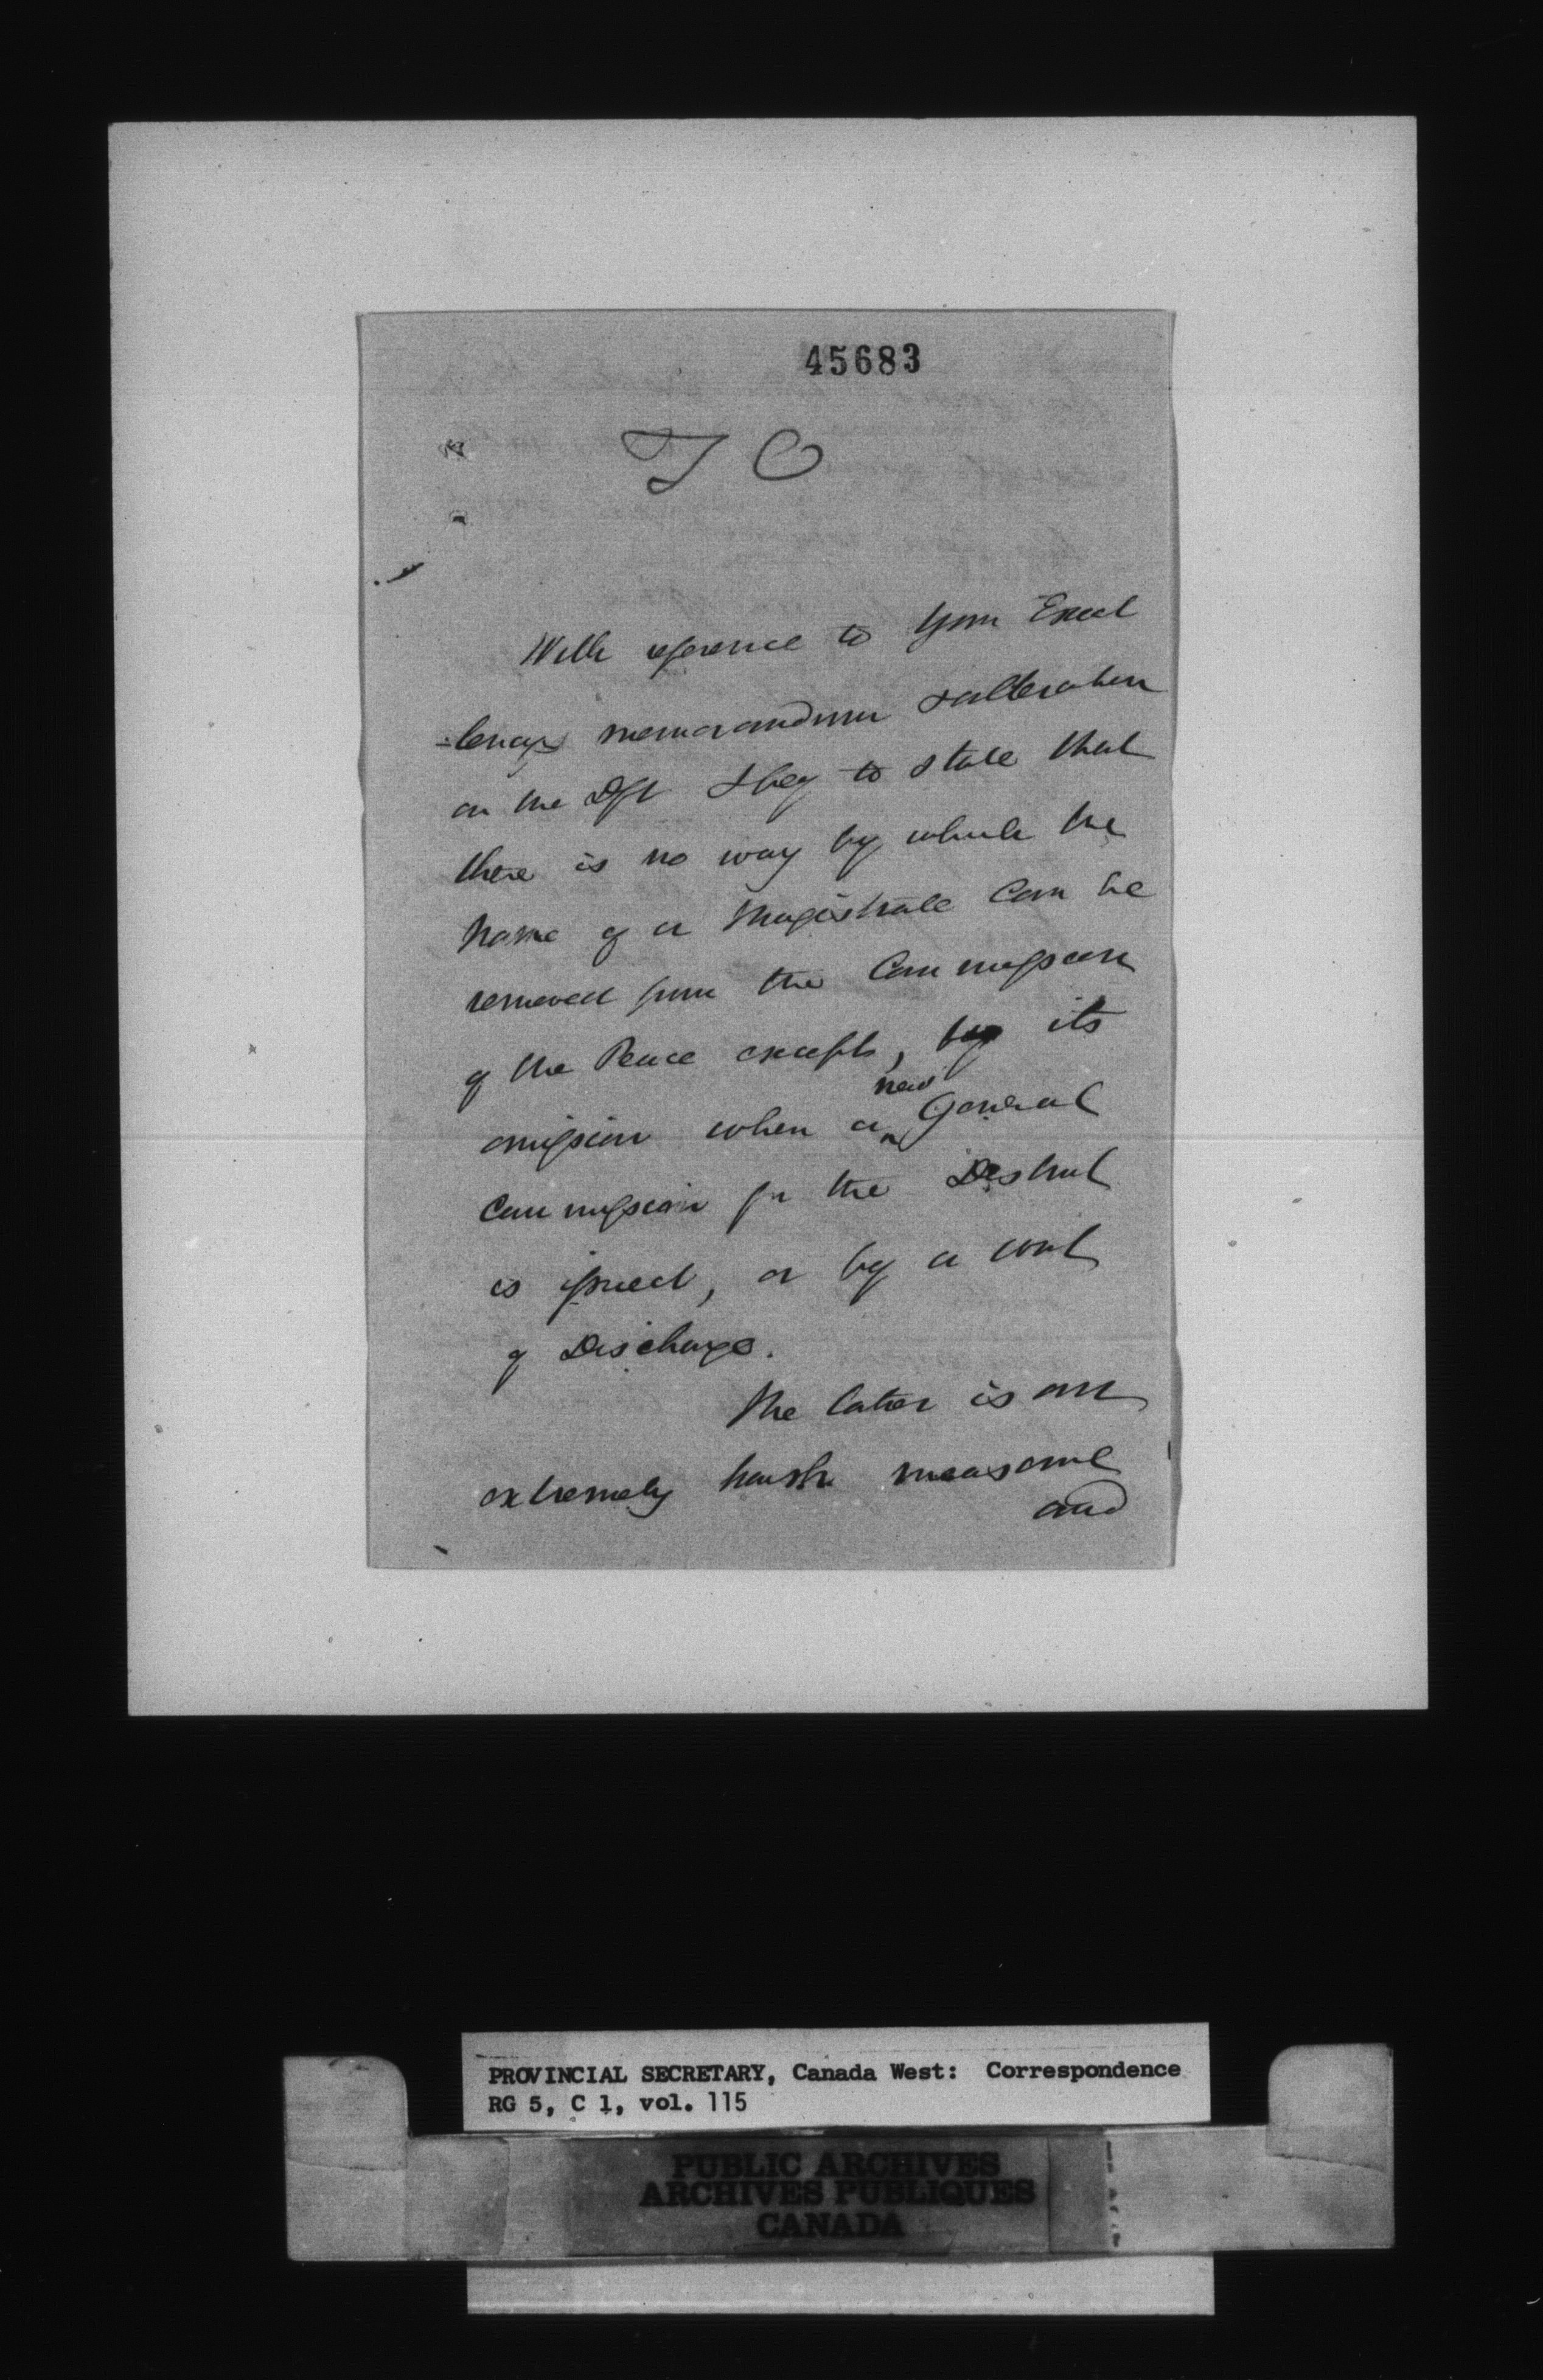 45683
With reference to Your Excel
-lency's memorandum & alteration
on the Dft I beg to state that
there is no way by which the
name of a Magistrate can be
removed from the Commission
of the Peace except, by its
new
omission when a General
Commission for the District
is issued, or by a writ
of Discharge.
The latter is an
extremely harsh measure
and
PROVINCIAL SECRETARY, Canada West: Correspondence
RG 5, C 1, vol. 115
PUBLIC ARCHIVES
ARCHIVES PUBLIQUES
CANADA